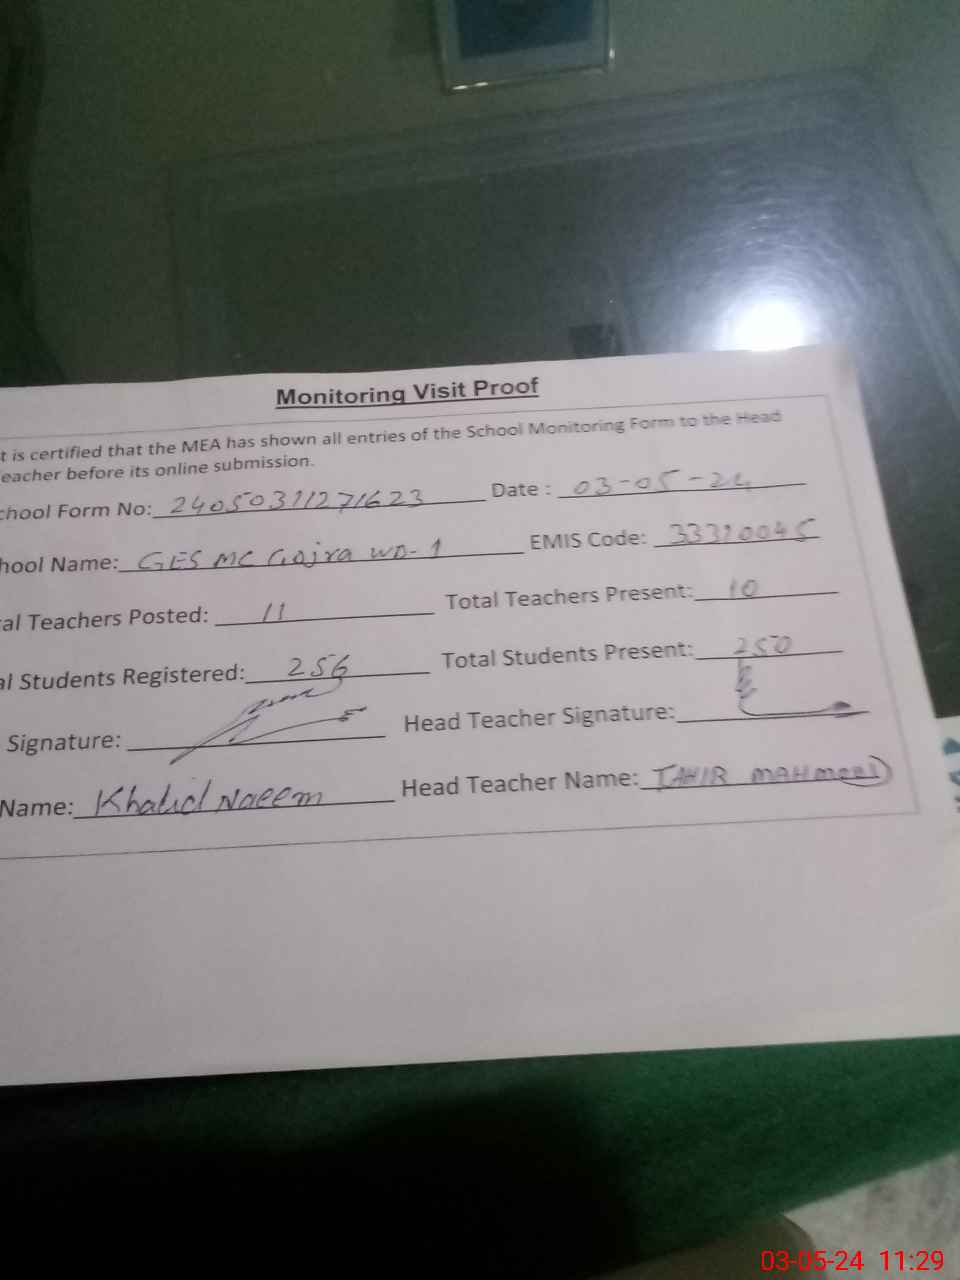 Monitoring Visit Proof
t is certified that the MEA has shown all entries of the School Monitoring Form to the Head
eacher before its online submission.
chool Form No: 24050311271623 Date : 03-05-24
hool Name: GES MC Gojra WD-1 EMIS Code: 33310045
al Teachers Posted: 11 Total Teachers Present: 10
al Students Registered: 256 Total Students Present: 250
Signature: Head Teacher Signature:
Name: Khalid Naeem Head Teacher Name: TAHIR MAHMOOD
03-05-24 11:29